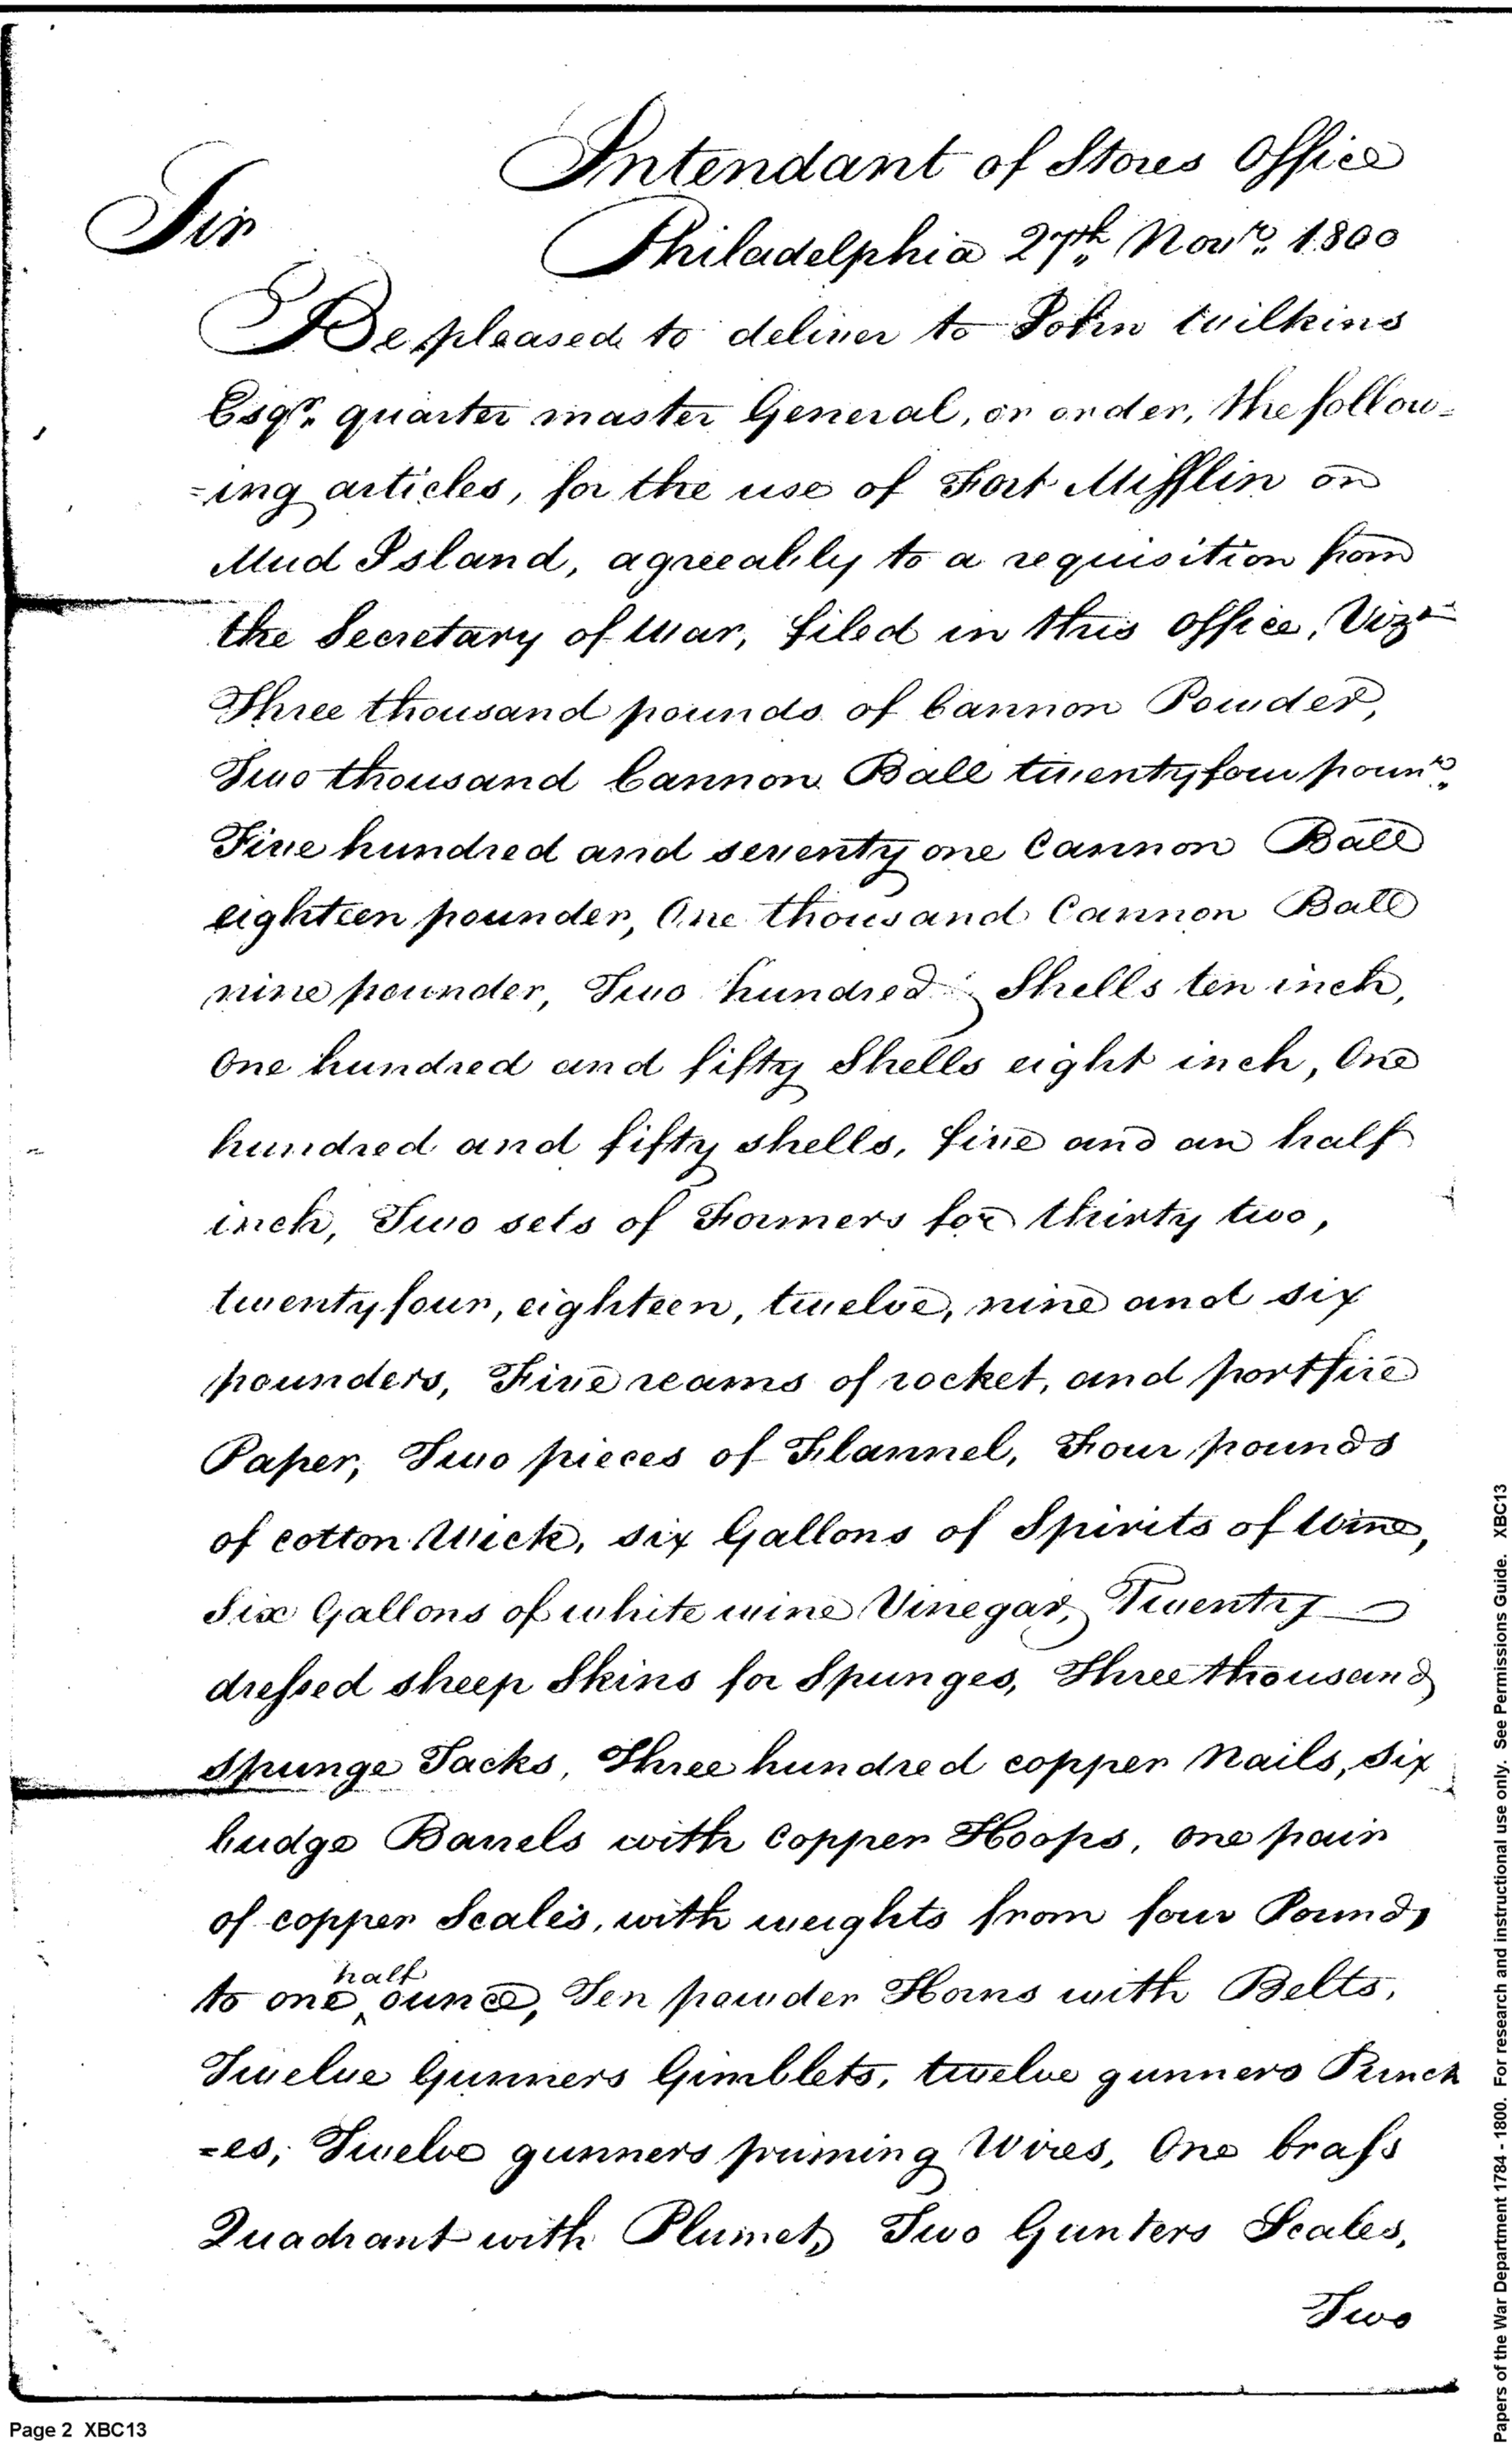 Intendant of Stores Office
Sir
Philadelphia 27th Novr. 1800
Be pleased to deliver to John Wilkins
Esqr. quarter master General, or order, the follow=
=ing articles, for the use of Fort Mifflin on
Mud Island, agreeably to a requisition from
the Secretary of War, filed in this Office, Vizt
Three thousand pounds of Cannon Powder,
Two thousand Cannon Ball twenty four pounr.
Five hundred and seventy one Cannon Ball
eighteen pounder, One thousand Cannon Ball
nine pounder, Two hundred Shells ten inch,
One hundred and fifty Shells eight inch, One
hundred and fifty shells, five and an half
inch, Two sets of Formers for thirty two,
twenty four, eighteen, twelve, nine and six
pounders, Five reams of rocket, and portfire
Paper, Two pieces of Flannel, Four pounds
of cotton Wick, six Gallons of Spirits of Wine,
Six Gallons of white wine Vinegar, Twenty
dressed sheep Skins for Spunges, Three thousand
Spunge Tacks, Three hundred copper Nails, six
budge Barrels with Copper Hoops, one pair
of copper Scales, with weights from four Pounds
to one half ounce, Ten powder Horns with Belts,
Twelve Gunners Gimblets, twelve gunners Punch
=es, Twelve gunners priming Wires, One brass
Quadrant with Plumet, Two Gunters Scales,
Two
Page 2 XBC13
Papers of the War Department 1784 - 1800. For research and instructional use only. See Permissions Guide. XBC13